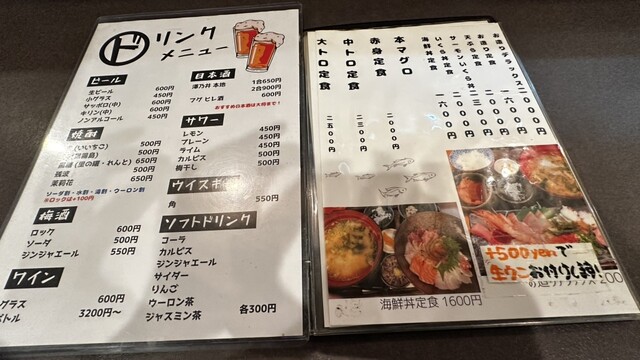 ドリンク
メニュー
ビール
生ビール 600円
小グラス 450円
サッポロ(中) 600円
キリン(中) 600円
ノンアルコール 450円
焼酎
(いいちこ) 500円
500円
(里の曙・れんと) 650円
残波 500円
茉莉花 650円
ソーダ割・水割・湯割・ウーロン割
※ロックは+100円
梅酒
ロック 600円
ソーダ 500円
ジンジャエール 550円
ワイン
グラス 600円
ボトル 3200円～
日本酒
澤乃井 本地 1合650円
2合900円
フグ ヒレ酒 600円
おすすめ日本酒は大将まで!
サワー
レモン 450円
プレーン 450円
ライム 450円
カルピス 500円
梅干し 500円
ウイスキー
角 550円
ソフトドリンク
コーラ
カルピス
ジンジャエール
サイダー
りんご
ウーロン茶
ジャスミン茶 各300円
お造りデラックス 二二〇〇円
お造り定食 一六〇〇円
天ぷら定食
サーモンいくら丼
いくら丼定食
海鮮丼定食 一六〇〇円
本マグロ
赤身定食 二〇〇〇円
中トロ定食 二三〇〇円
大トロ定食 二五〇〇円
海鮮丼定食 1600円
+500yenで
生うにお付けし〼!